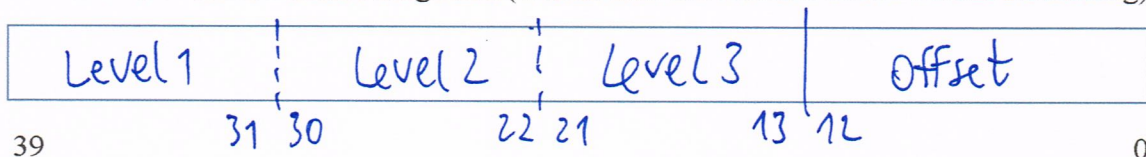 Level 1 Level 2 Level 3 Offset
39 31 30 22 21 13 12 0